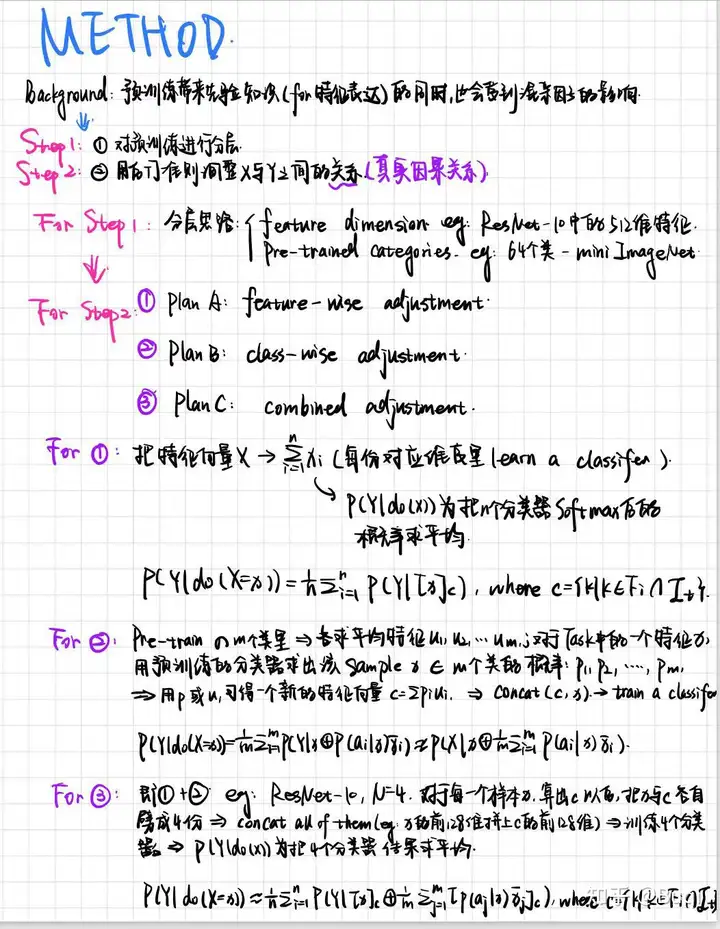 METHOD.
Background: 预训练带来先验知识(for 特征表达)的同时,也会受到混杂因子的影响.
Step1: ① 对预训练进行分层.
Step2: ② 用后门准则调整X与Y之间的关系(真实因果关系).
For Step1: 分层思路: { feature dimension eg: ResNet-10中的512维特征.
Pre-trained categories. eg: 64个类-miniImageNet
For Step2: ① Plan A: feature-wise adjustment.
② Plan B: class-wise adjustment.
③ Plan C: combined adjustment.
For ①: 把特征向量X → Σ_{i=1}^{n} x_i (每份对应维度里 learn a classifer).
P(Y|do(X))为把n个分类器Softmax后的
概率求平均.
P(Y|do(X=x)) = 1/n Σ_{i=1}^{n} P(Y|[x]_c), where c={k|k∈F_i∩I_t}.
For ②: Pre-train の m个类里 ⇒ 各求平均特征 u_1, u_2, ... u_m, ;对于Task中的一个特征x,
用预训练的分类器求出该 Sample x ∈ m个类的概率: p_1, p_2, ..., p_m,
⇒ 用p或u,可得一个新的特征向量 c=Σp_iu_i. ⇒ concat(c, x). → train a classifer
P(Y|do(X=x)) = 1/m Σ_{i=1}^{m} P(Y|x⊕P(a_i|x)x̄_i) ≈ P(X|x⊕1/m Σ_{i=1}^{m} P(a_i|x)x̄_i).
For ③: 即①+② eg: ResNet-10, N=4. 对于每一个样本x, 算出c以后, 把x与c各自
劈成4份 ⇒ concat all of them(eg: x的前128维拼上c的前128维) ⇒ 训练4个分类
器. ⇒ P(Y|do(x))为把4个分类器结果求平均.
P(Y|do(X=x)) ≈ 1/n Σ_{i=1}^{n} P(Y|[x]_c⊕1/m Σ_{j=1}^{m} [P(a_j|x)x̄_j]_c), where c={k|k∈F_i∩I_t}